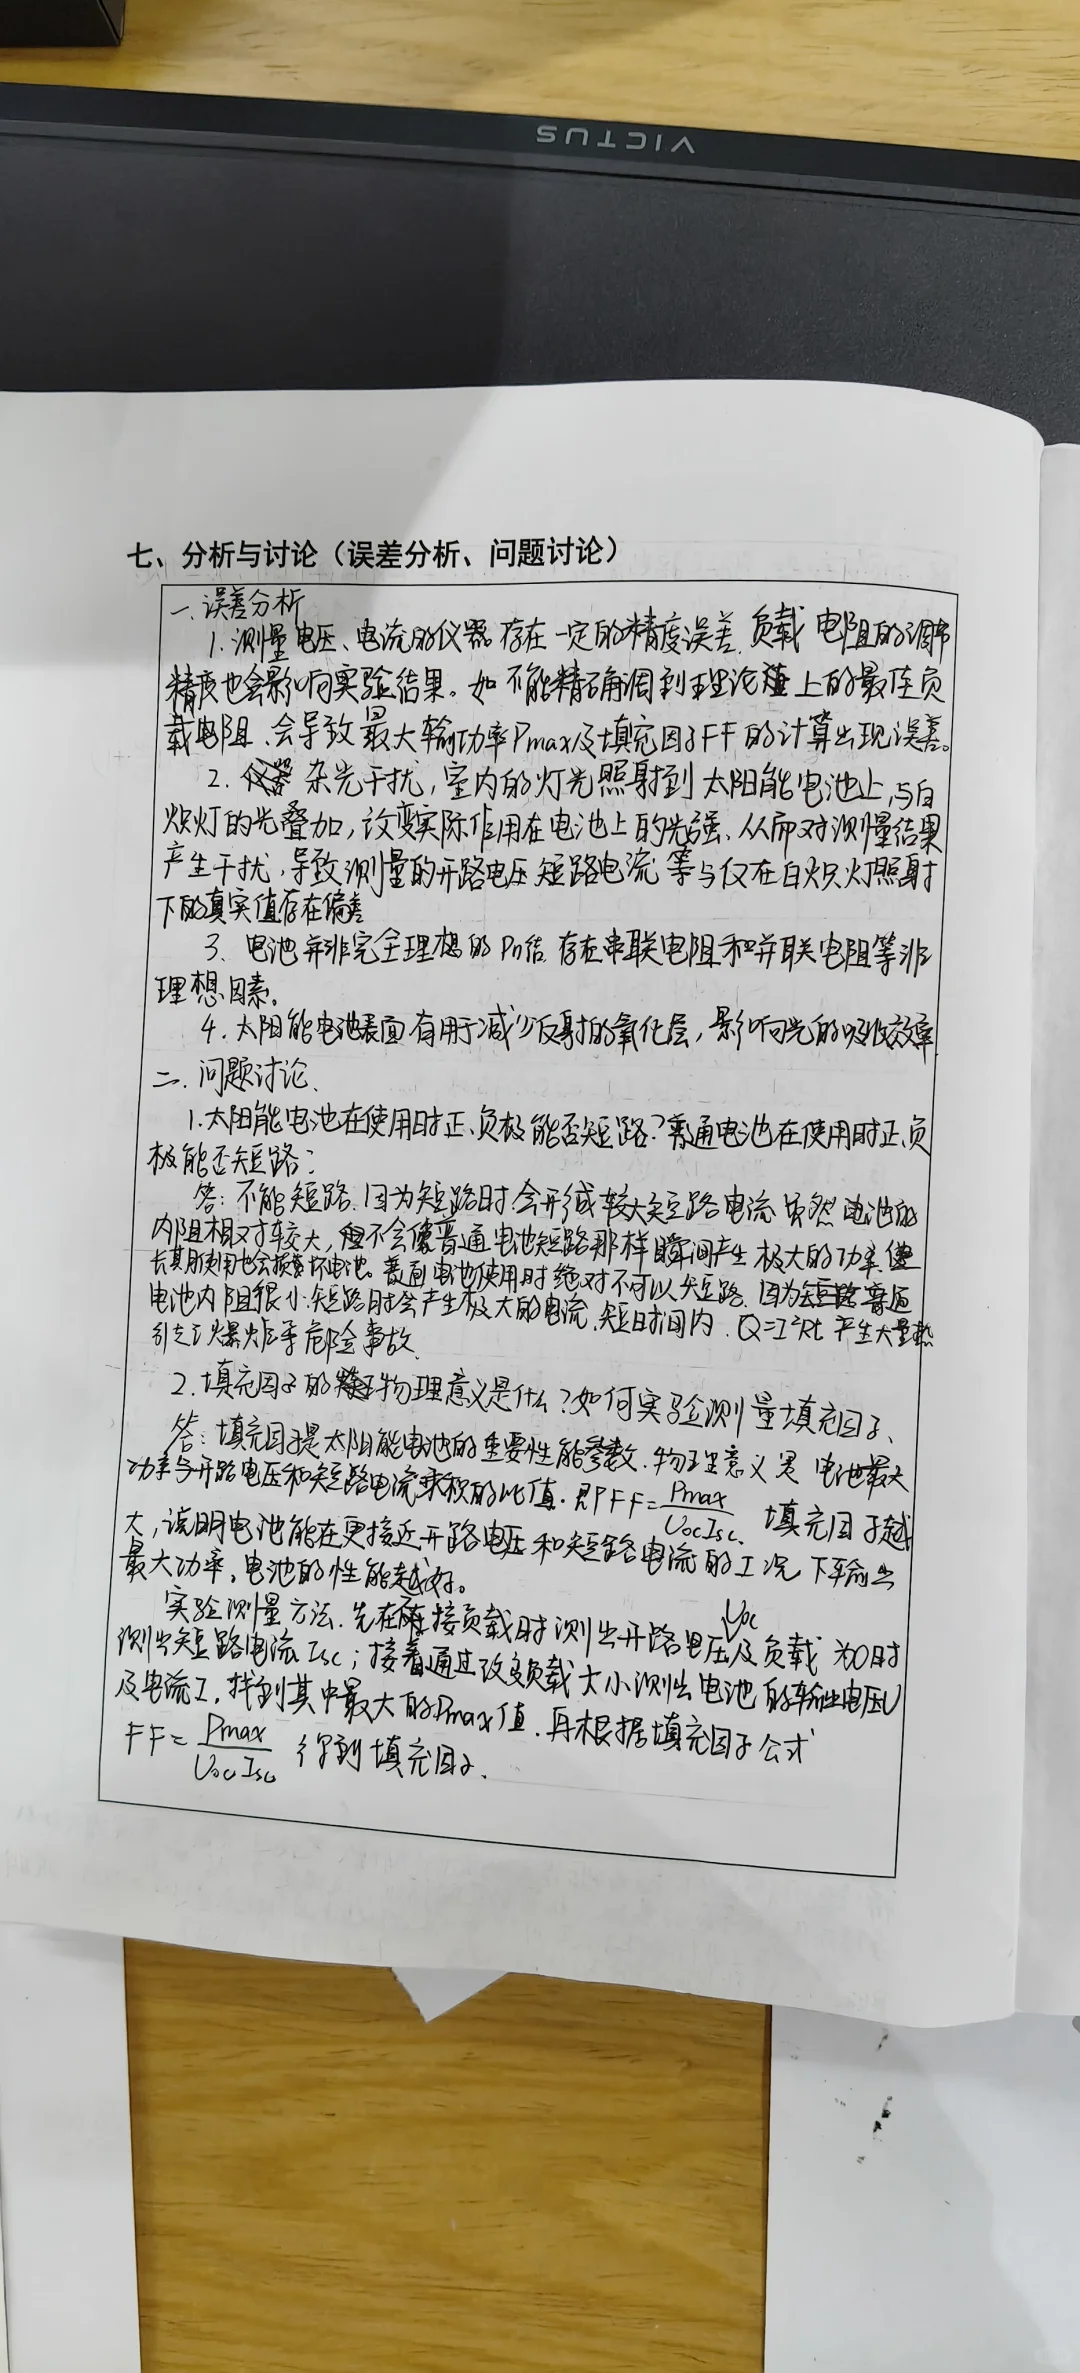 VICTUS
七、分析与讨论（误差分析、问题讨论）
一、误差分析
1. 测量电压、电流的仪器存在一定的精度误差，负载电阻的调节
精度也会影响实验结果。如不能精确调到理论值上的最佳负
载电阻，会导致最大输功率Pmax及填充因子FF的计算出现误差。
2. 杂光干扰，室内的灯光照射到太阳能电池上，与白
炽灯的光叠加，改变实际作用在电池上的光强，从而对测量结果
产生干扰，导致测量的开路电压 短路电流 等与仅在白炽灯照射
下的真实值存在偏差
3、电池并非完全理想的Pn结，存在串联电阻和并联电阻等非
理想因素。
4. 太阳能电池表面有用于减少反射的氧化层，影响光的吸收效率
二. 问题讨论.
1. 太阳能电池在使用时正、负极能否短路？普通电池在使用时正、负
极能否短路？
答：不能短路．因为短路时会形成较大短路电流 虽然电池的
内阻相对较大，但不会像普通电池短路那样瞬间产生极大的功率，但
长期使用也会损坏电池。普通电池使用时绝对不可以短路．因为普通
电池内阻很小．短路时会产生极大的电流，短时间内．Q=I²Rt 产生大量热
引起爆炸等危险事故．
2. 填充因子的物理意义是什么？如何实验测量填充因子、
答：填充因子是太阳能电池的重要性能参数．物理意义是 电池最大
功率与开路电压和短路电流乘积的比值．即FF=Pmax/UocIsc. 填充因子越
大，说明电池能在更接近开路电压和短路电流的工况下输出
最大功率，电池的性能越好。
实验测量方法．先在接负载时测出开路电压Uoc及负载为0时
测出短路电流Isc；接着通过改变负载大小测出电池的输出电压U
及电流I，找到其中最大的Pmax值．再根据填充因子公式
FF=Pmax/UocIsc 得到填充因子．